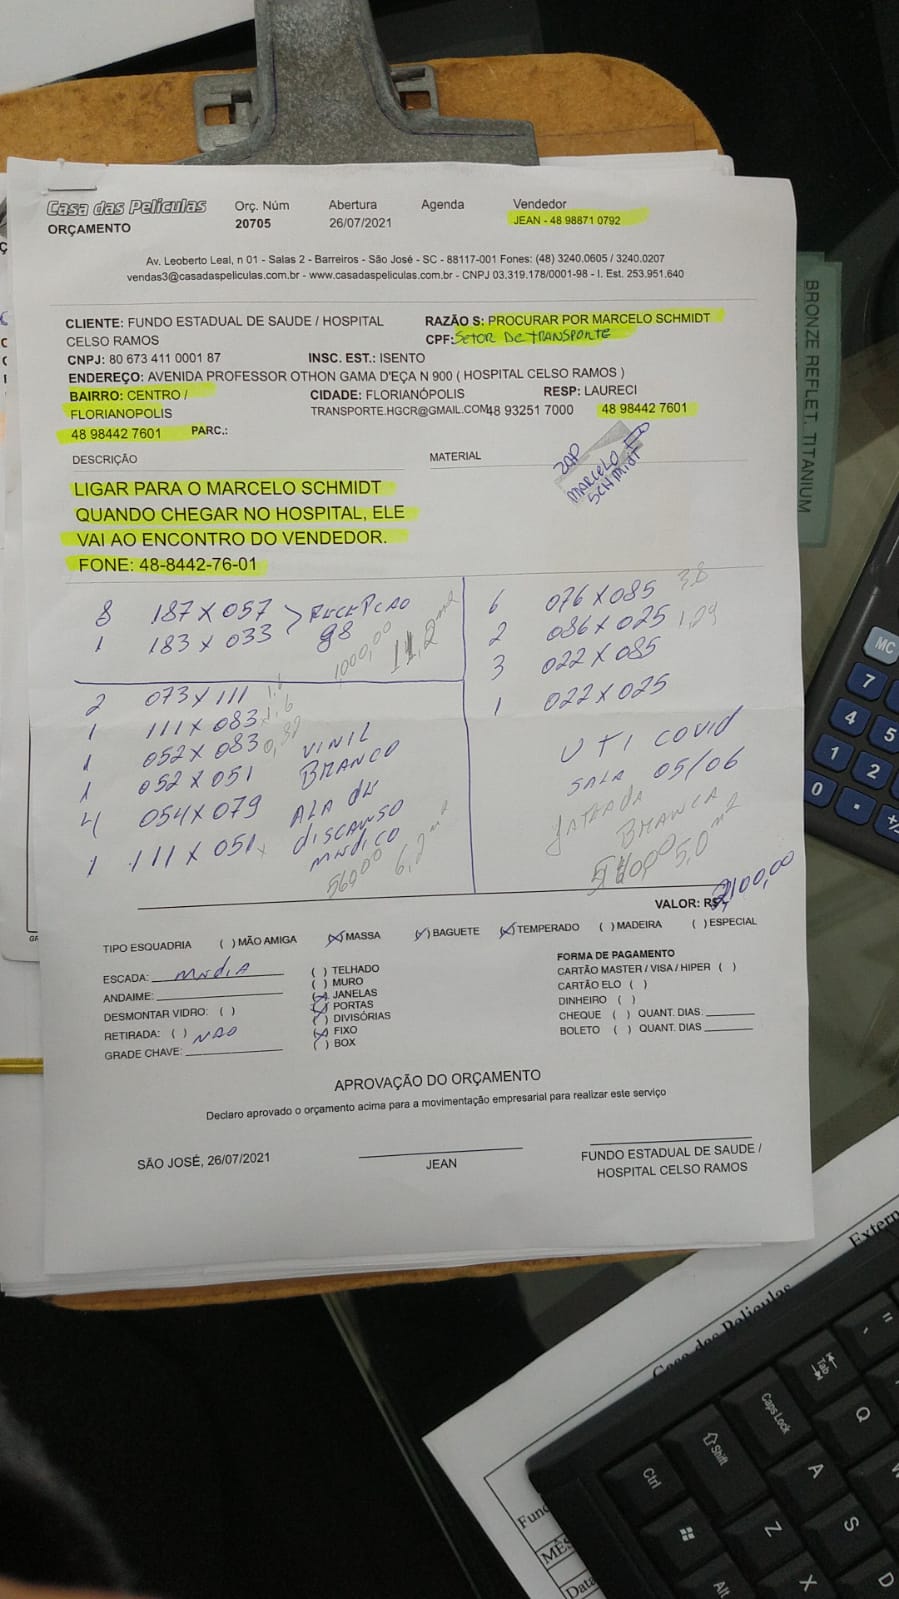 Casa das Películas
ORÇAMENTO
Orç. Núm
20705
Abertura
26/07/2021
Agenda
Vendedor
JEAN - 48 98871 0792
Av. Leoberto Leal, n 01 - Salas 2 - Barreiros - São José - SC - 88117-001 Fones: (48) 3240.0605 / 3240.0207
vendas3@casadaspeliculas.com.br - www.casadaspeliculas.com.br - CNPJ 03.319.178/0001-98 - I. Est. 253.951.640
CLIENTE: FUNDO ESTADUAL DE SAUDE / HOSPITAL
CELSO RAMOS
RAZÃO S: PROCURAR POR MARCELO SCHMIDT
CPF: SETOR DE TRANSPORTE
CNPJ: 80 673 411 0001 87
INSC. EST.: ISENTO
ENDEREÇO: AVENIDA PROFESSOR OTHON GAMA D'EÇA N 900 ( HOSPITAL CELSO RAMOS )
BAIRRO: CENTRO /
FLORIANOPOLIS
CIDADE: FLORIANÓPOLIS
RESP: LAURECI
TRANSPORTE.HGCR@GMAIL.COM 48 93251 7000
48 98442 7601
48 98442 7601
PARC.:
DESCRIÇÃO
MATERIAL
ZAP
MARCELO
SCHMIDT
LIGAR PARA O MARCELO SCHMIDT
QUANDO CHEGAR NO HOSPITAL, ELE
VAI AO ENCONTRO DO VENDEDOR.
FONE: 48-8442-76-01
8 187 X 057 > RECEPCAO
1 183 X 033 g8
1000,00 11,2 m2
2 073 X 111
1 111 X 083
1 052 X 083 VINIL
1 052 X 051 BRANCO
4 054 X 079 ALA DE
1 111 X 051 DISCANSO
MEDICO
560,00 6,2 m2
6 076 X 085 3,8
2 086 X 025 1,29
3 022 X 085
1 022 X 025
UTI COVID
SALA 05/06
JATEADA
BRANCA
5,0 m2
VALOR: R$ 2100,00
TIPO ESQUADRIA ( ) MÃO AMIGA (X) MASSA (✓) BAGUETE (X) TEMPERADO ( ) MADEIRA ( ) ESPECIAL
ESCADA: MEDIA
ANDAIME:
DESMONTAR VIDRO: ( )
RETIRADA: ( ) NAO
GRADE CHAVE:
( ) TELHADO
( ) MURO
(X) JANELAS
(X) PORTAS
( ) DIVISÓRIAS
(X) FIXO
( ) BOX
FORMA DE PAGAMENTO
CARTÃO MASTER / VISA / HIPER ( )
CARTÃO ELO ( )
DINHEIRO ( )
CHEQUE ( ) QUANT. DIAS:
BOLETO ( ) QUANT. DIAS
APROVAÇÃO DO ORÇAMENTO
Declaro aprovado o orçamento acima para a movimentação empresarial para realizar este serviço
SÃO JOSÉ, 26/07/2021
JEAN
FUNDO ESTADUAL DE SAUDE /
HOSPITAL CELSO RAMOS
BRONZE REFLET. TITANIUM
MC
7
4
5
1
2
0
.
+/
Extern
Casa das Películas
Fun
MÊS
Data
Tab
Caps Lock
Q
Shift
A
Ctrl
Z
S
Alt
X
D